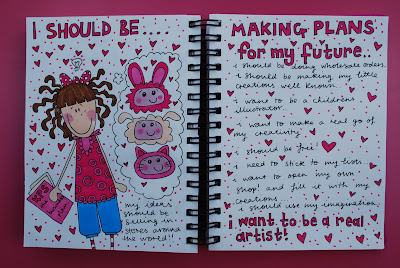 I SHOULD BE....
my ideas
should be
selling in
stores around
the world!!
MAKING PLANS
for my future..
i should be doing wholesale orders.
i should be making my little
creations well known.
i want to be a childrens
illustrator.
i want to make a real go of
my creativity
i should be free!
i need to stick to my lists.
i want to open my own
shop! and fill it with my
creations.
i should use my imagination.
i want to be a real
artist!